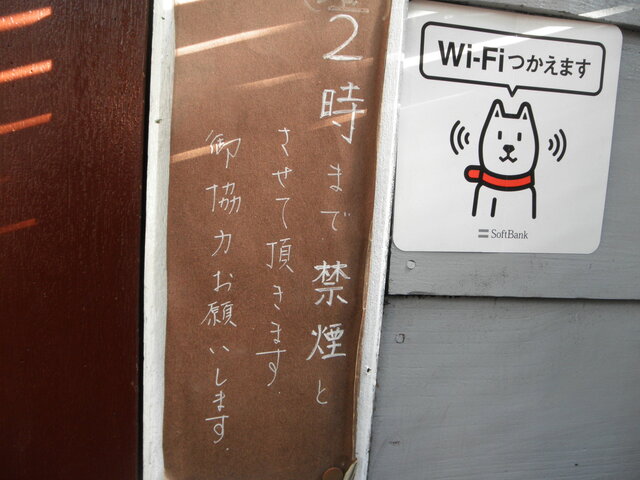 2時まで禁煙と
させて頂きます.
御協力お願いします.
Wi-Fiつかえます
SoftBank